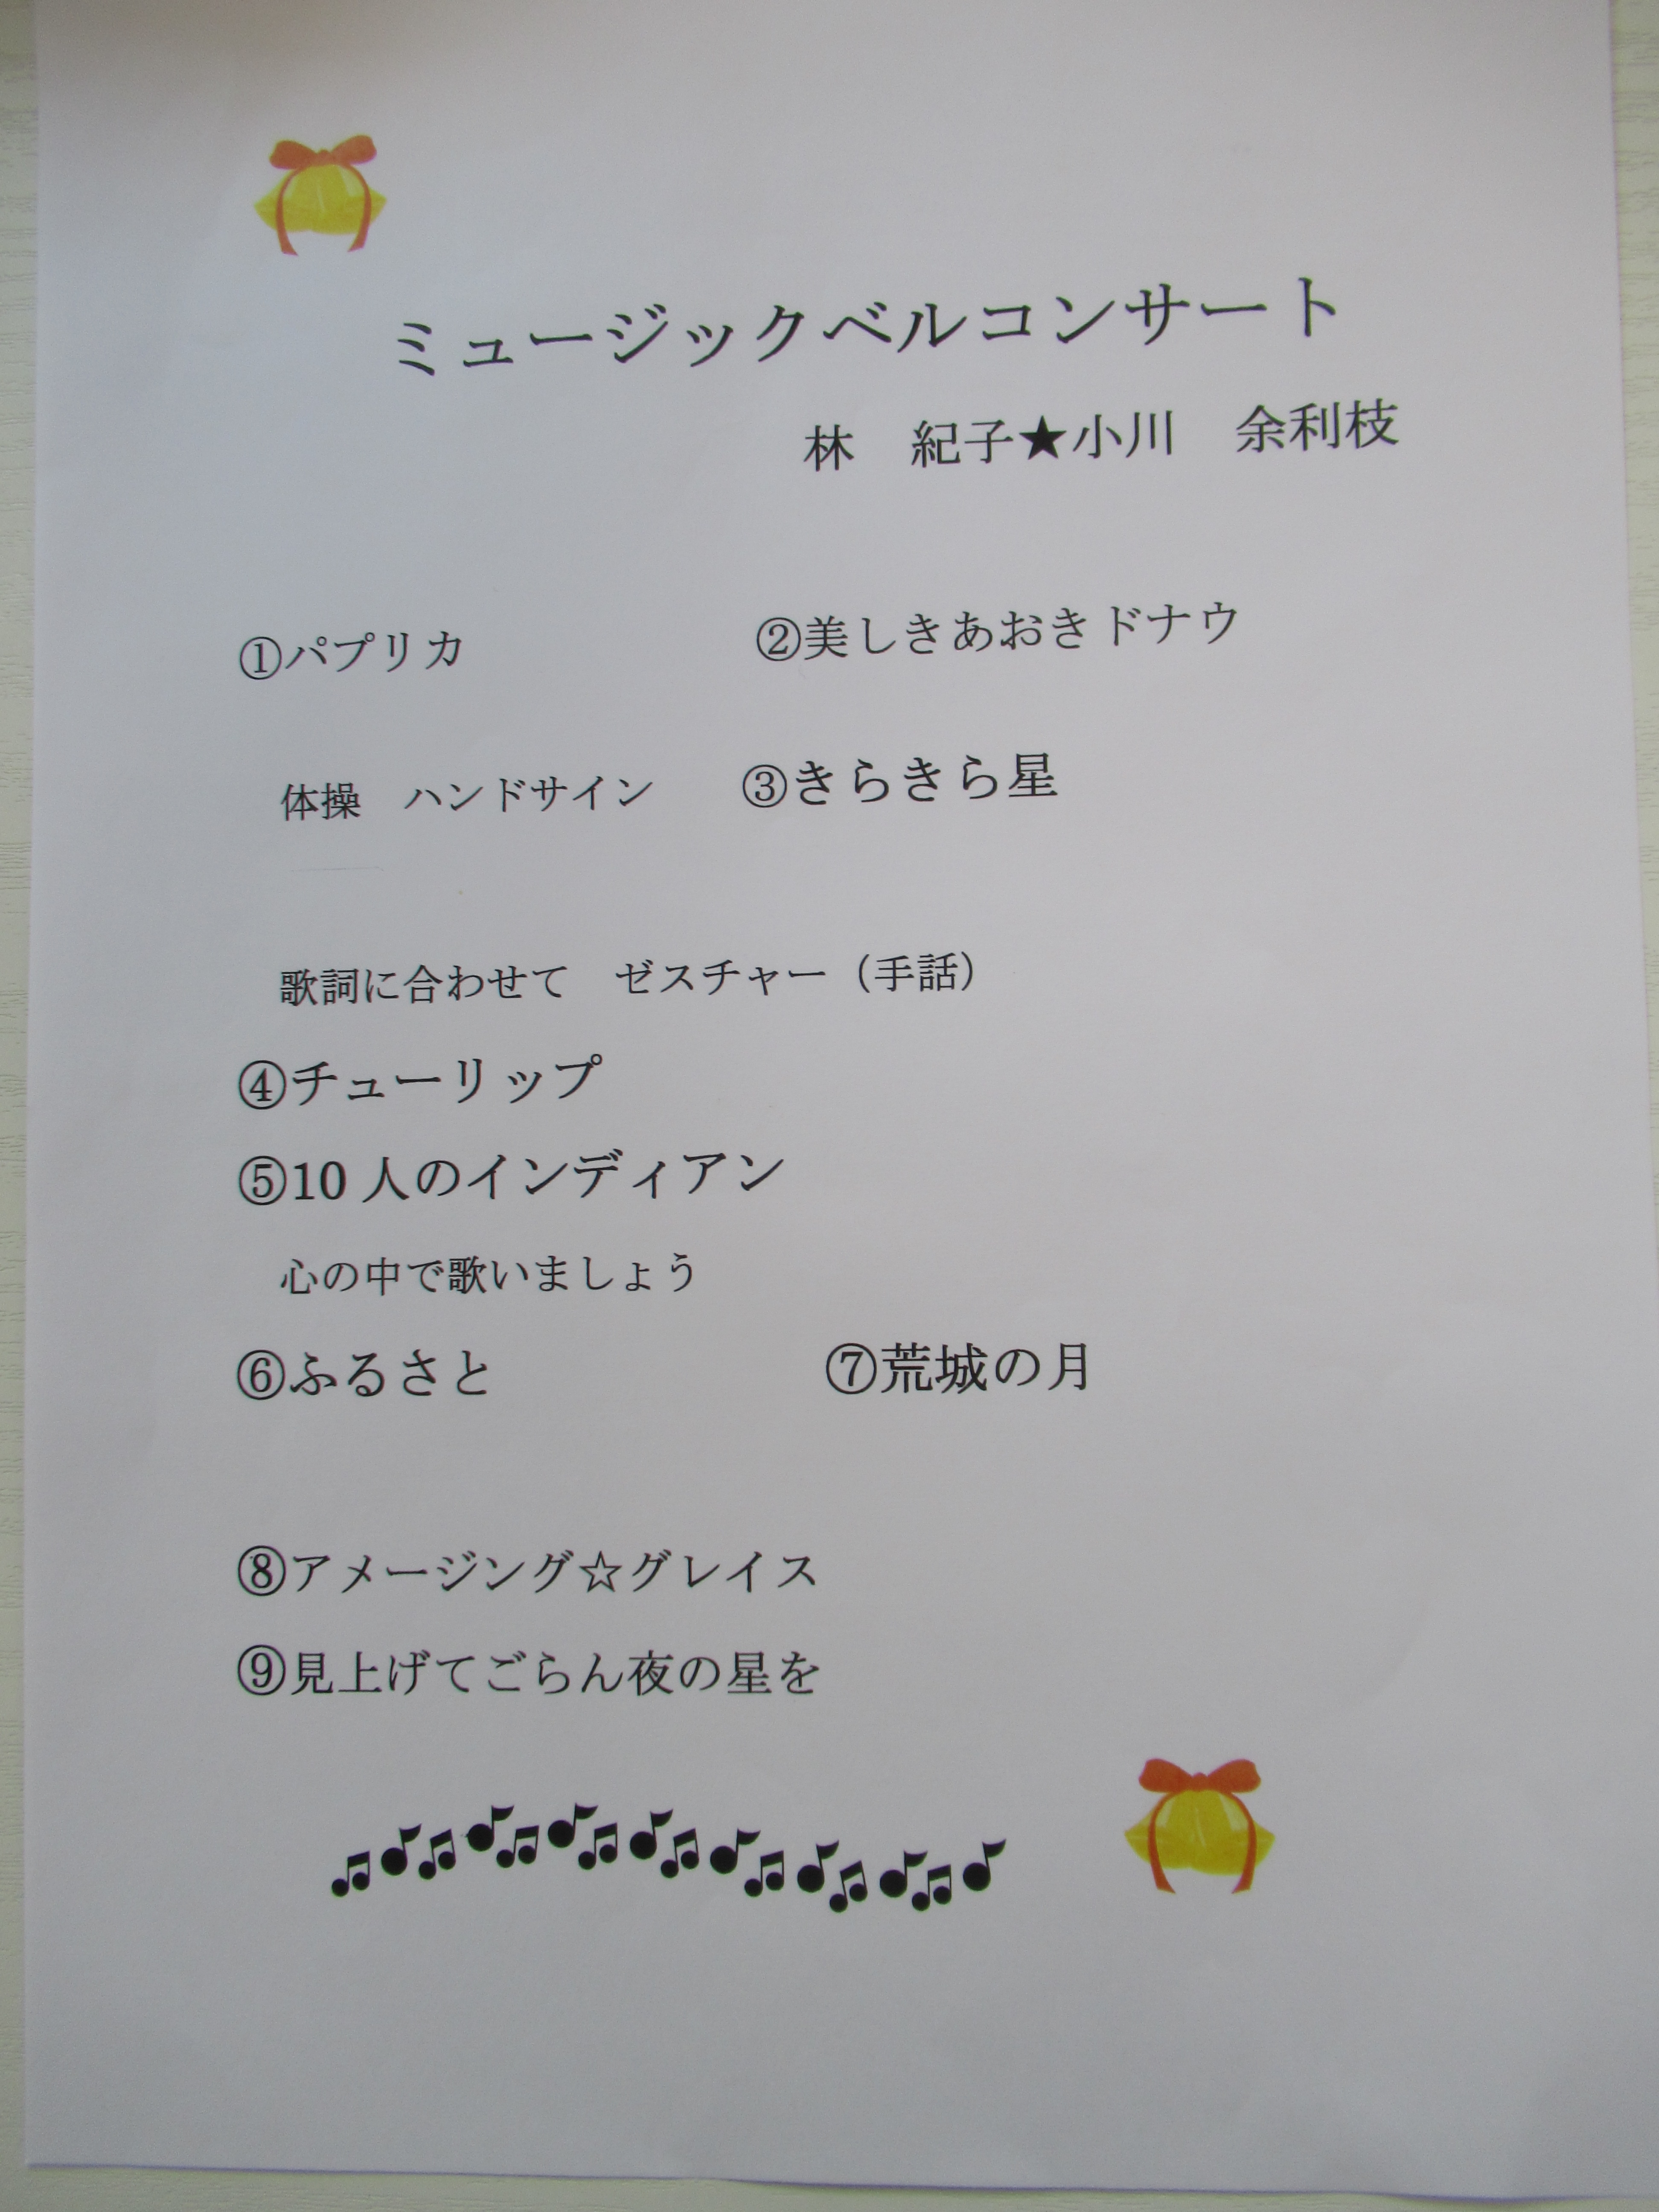 ミュージックベルコンサート
林　紀子★小川　余利枝
①パプリカ　②美しきあおきドナウ
体操　ハンドサイン　③きらきら星
歌詞に合わせて　ゼスチャー（手話）
④チューリップ
⑤10人のインディアン
心の中で歌いましょう
⑥ふるさと　⑦荒城の月
⑧アメージング☆グレイス
⑨見上げてごらん夜の星を